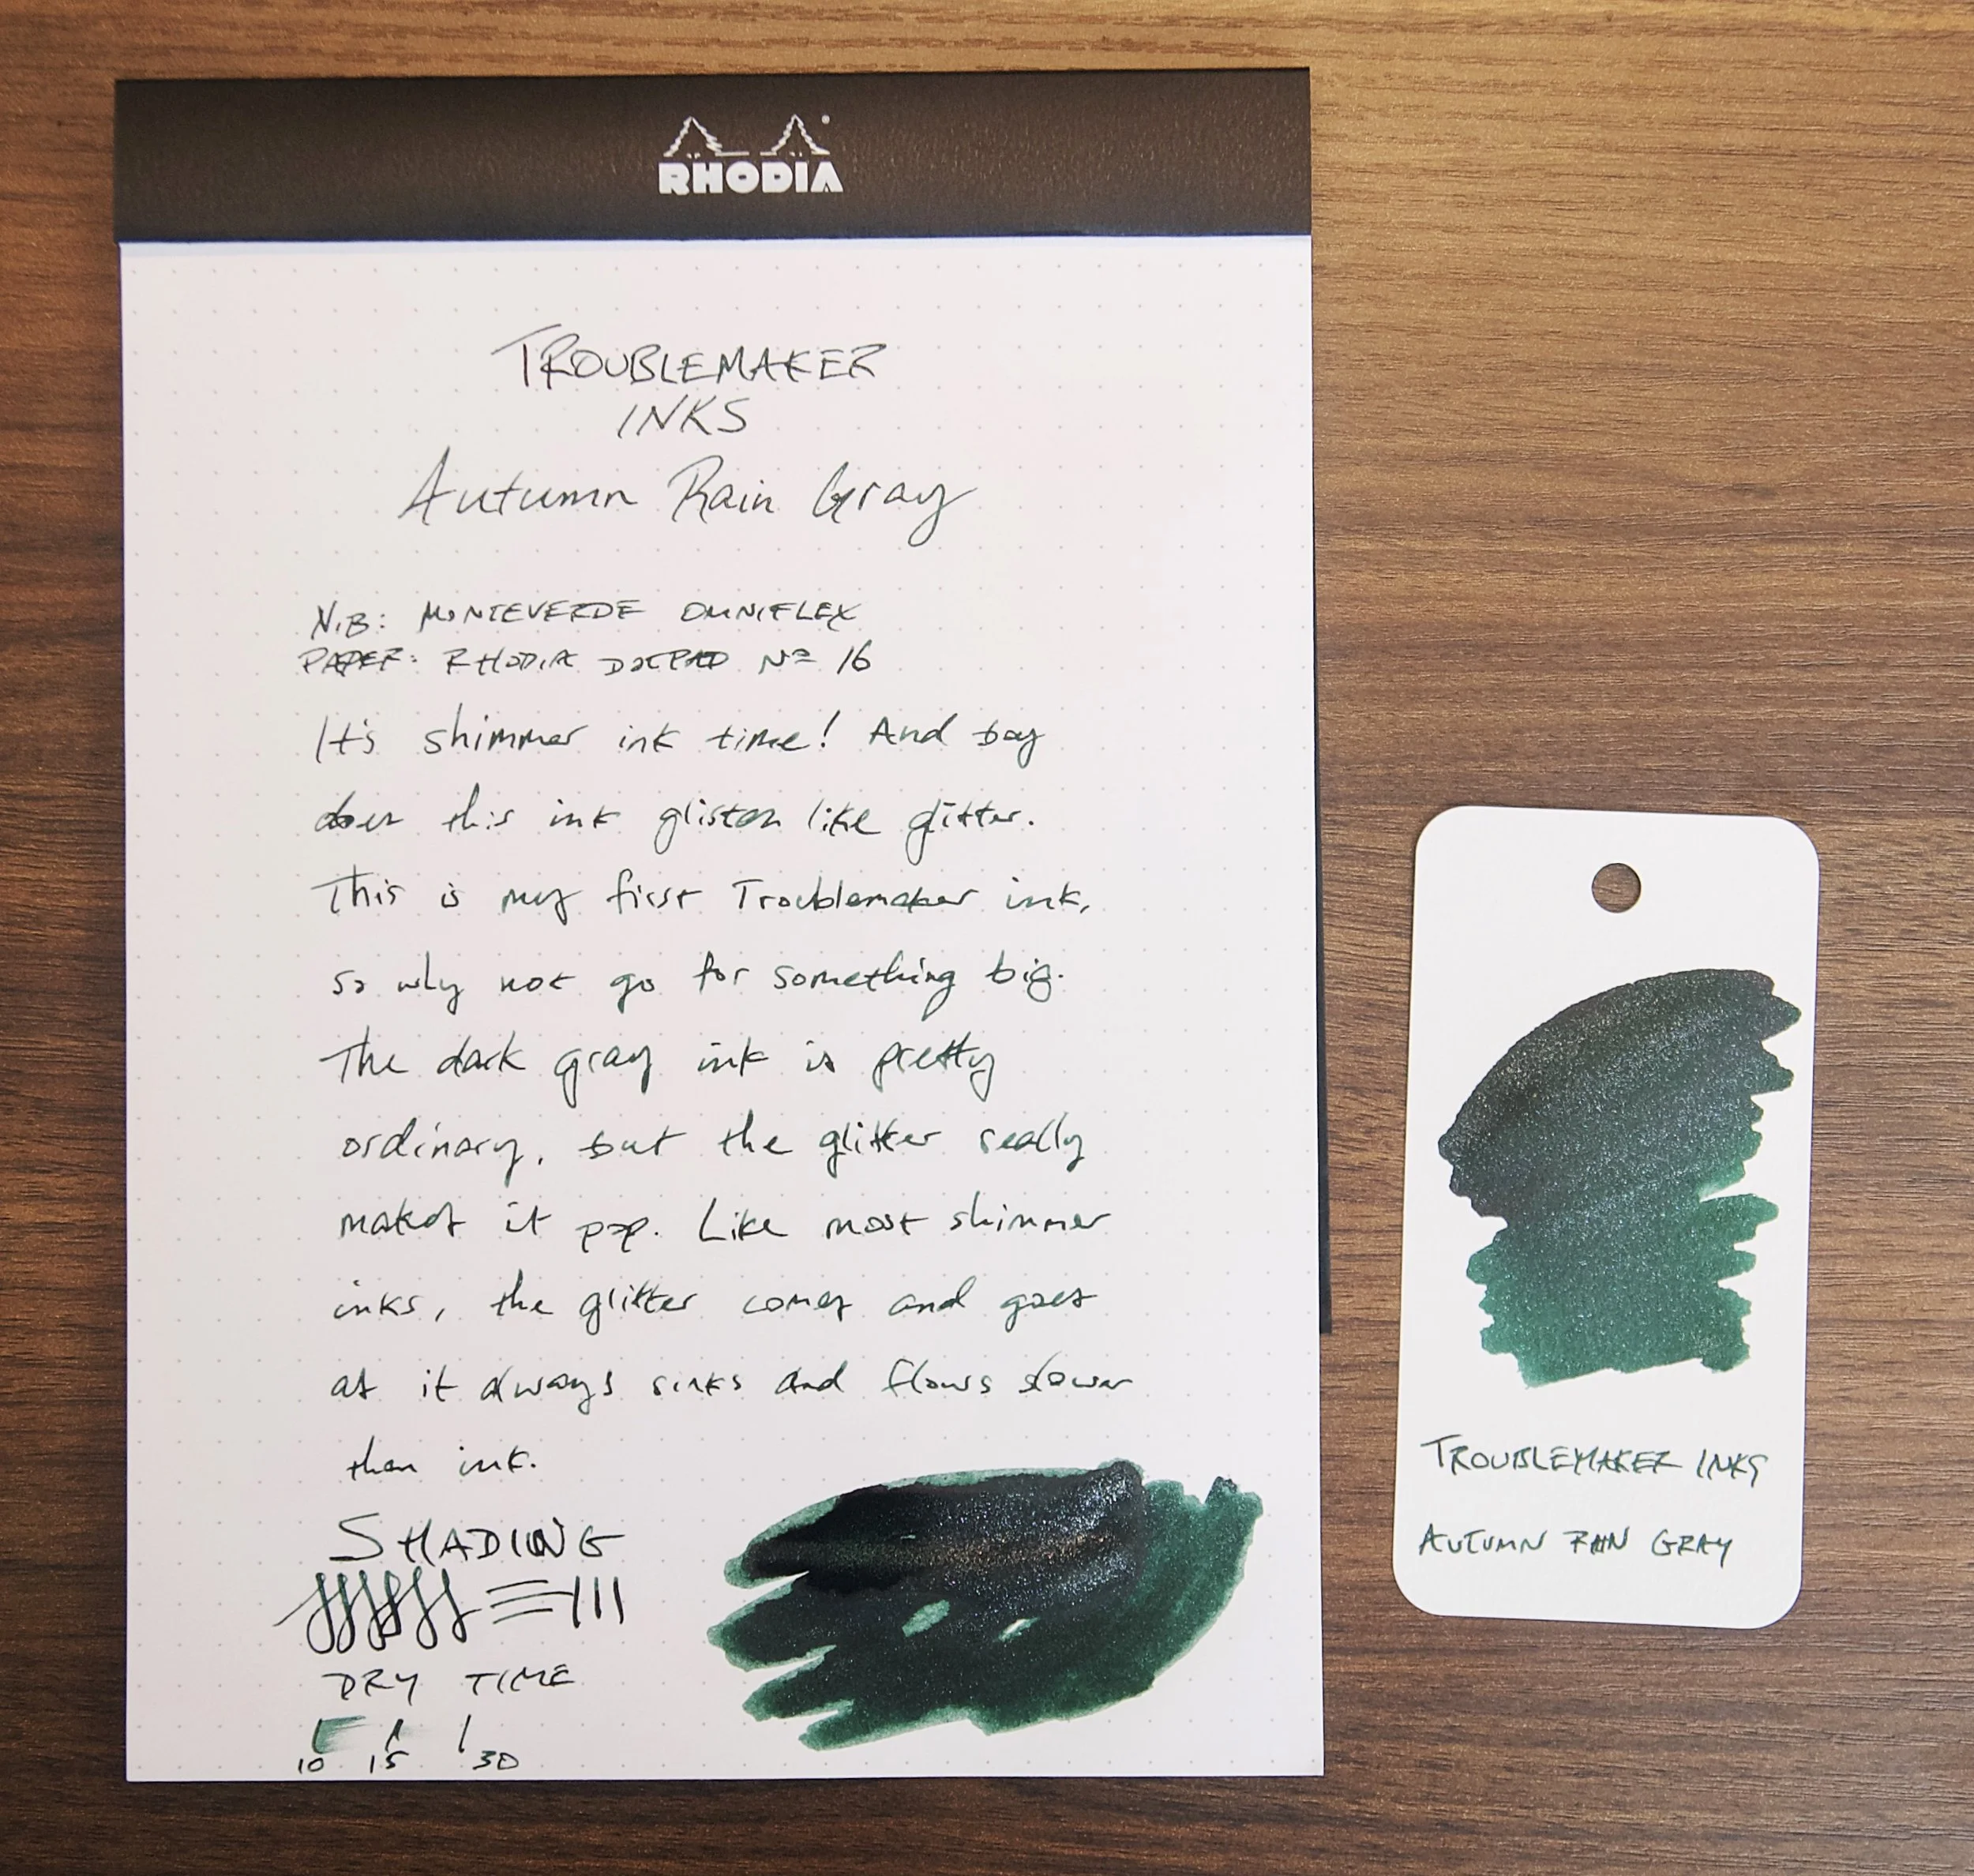 RHODIA
TROUBLEMAKER
INKS
Autumn Rain Gray
NIB: MONTEVERDE OMNIFLEX
PAPER: RHODIA DOTPAD Nº 16
It's shimmer ink time! And boy
does this ink glisten like glitter.
This is my first Troublemaker ink,
so why not go for something big.
The dark gray ink is pretty
ordinary, but the glitter really
makes it pop. Like most shimmer
inks, the glitter comes and goes
as it always sinks and flows slower
than ink.
SHADING
DRY TIME
10 15 30
TROUBLEMAKER INKS
AUTUMN RAIN GRAY